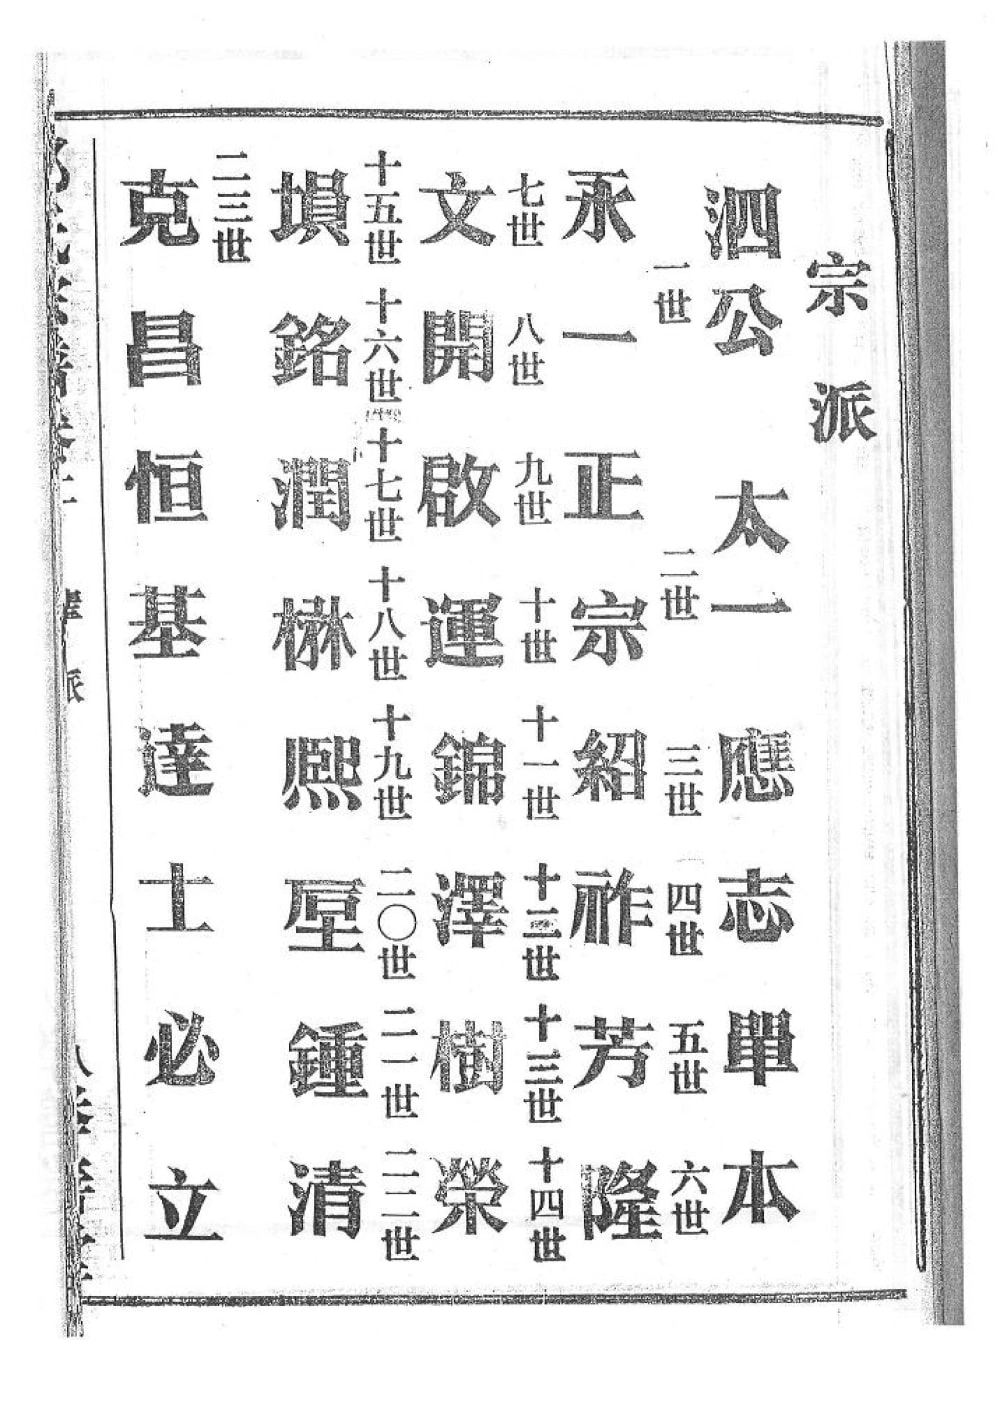 宗派
泗公 太一 應志單本
一世 二世 三世 四世 五世 六世
永一正宗紹祚芳隆
七世 八世 九世 十世 十一世 十二世 十三世 十四世
文開啟運錦澤樹榮
十五世 十六世 十七世 十八世 十九世 二〇世 二一世 二二世
塤銘潤楙熙垕鍾清
二三世
克昌恒基達士必立